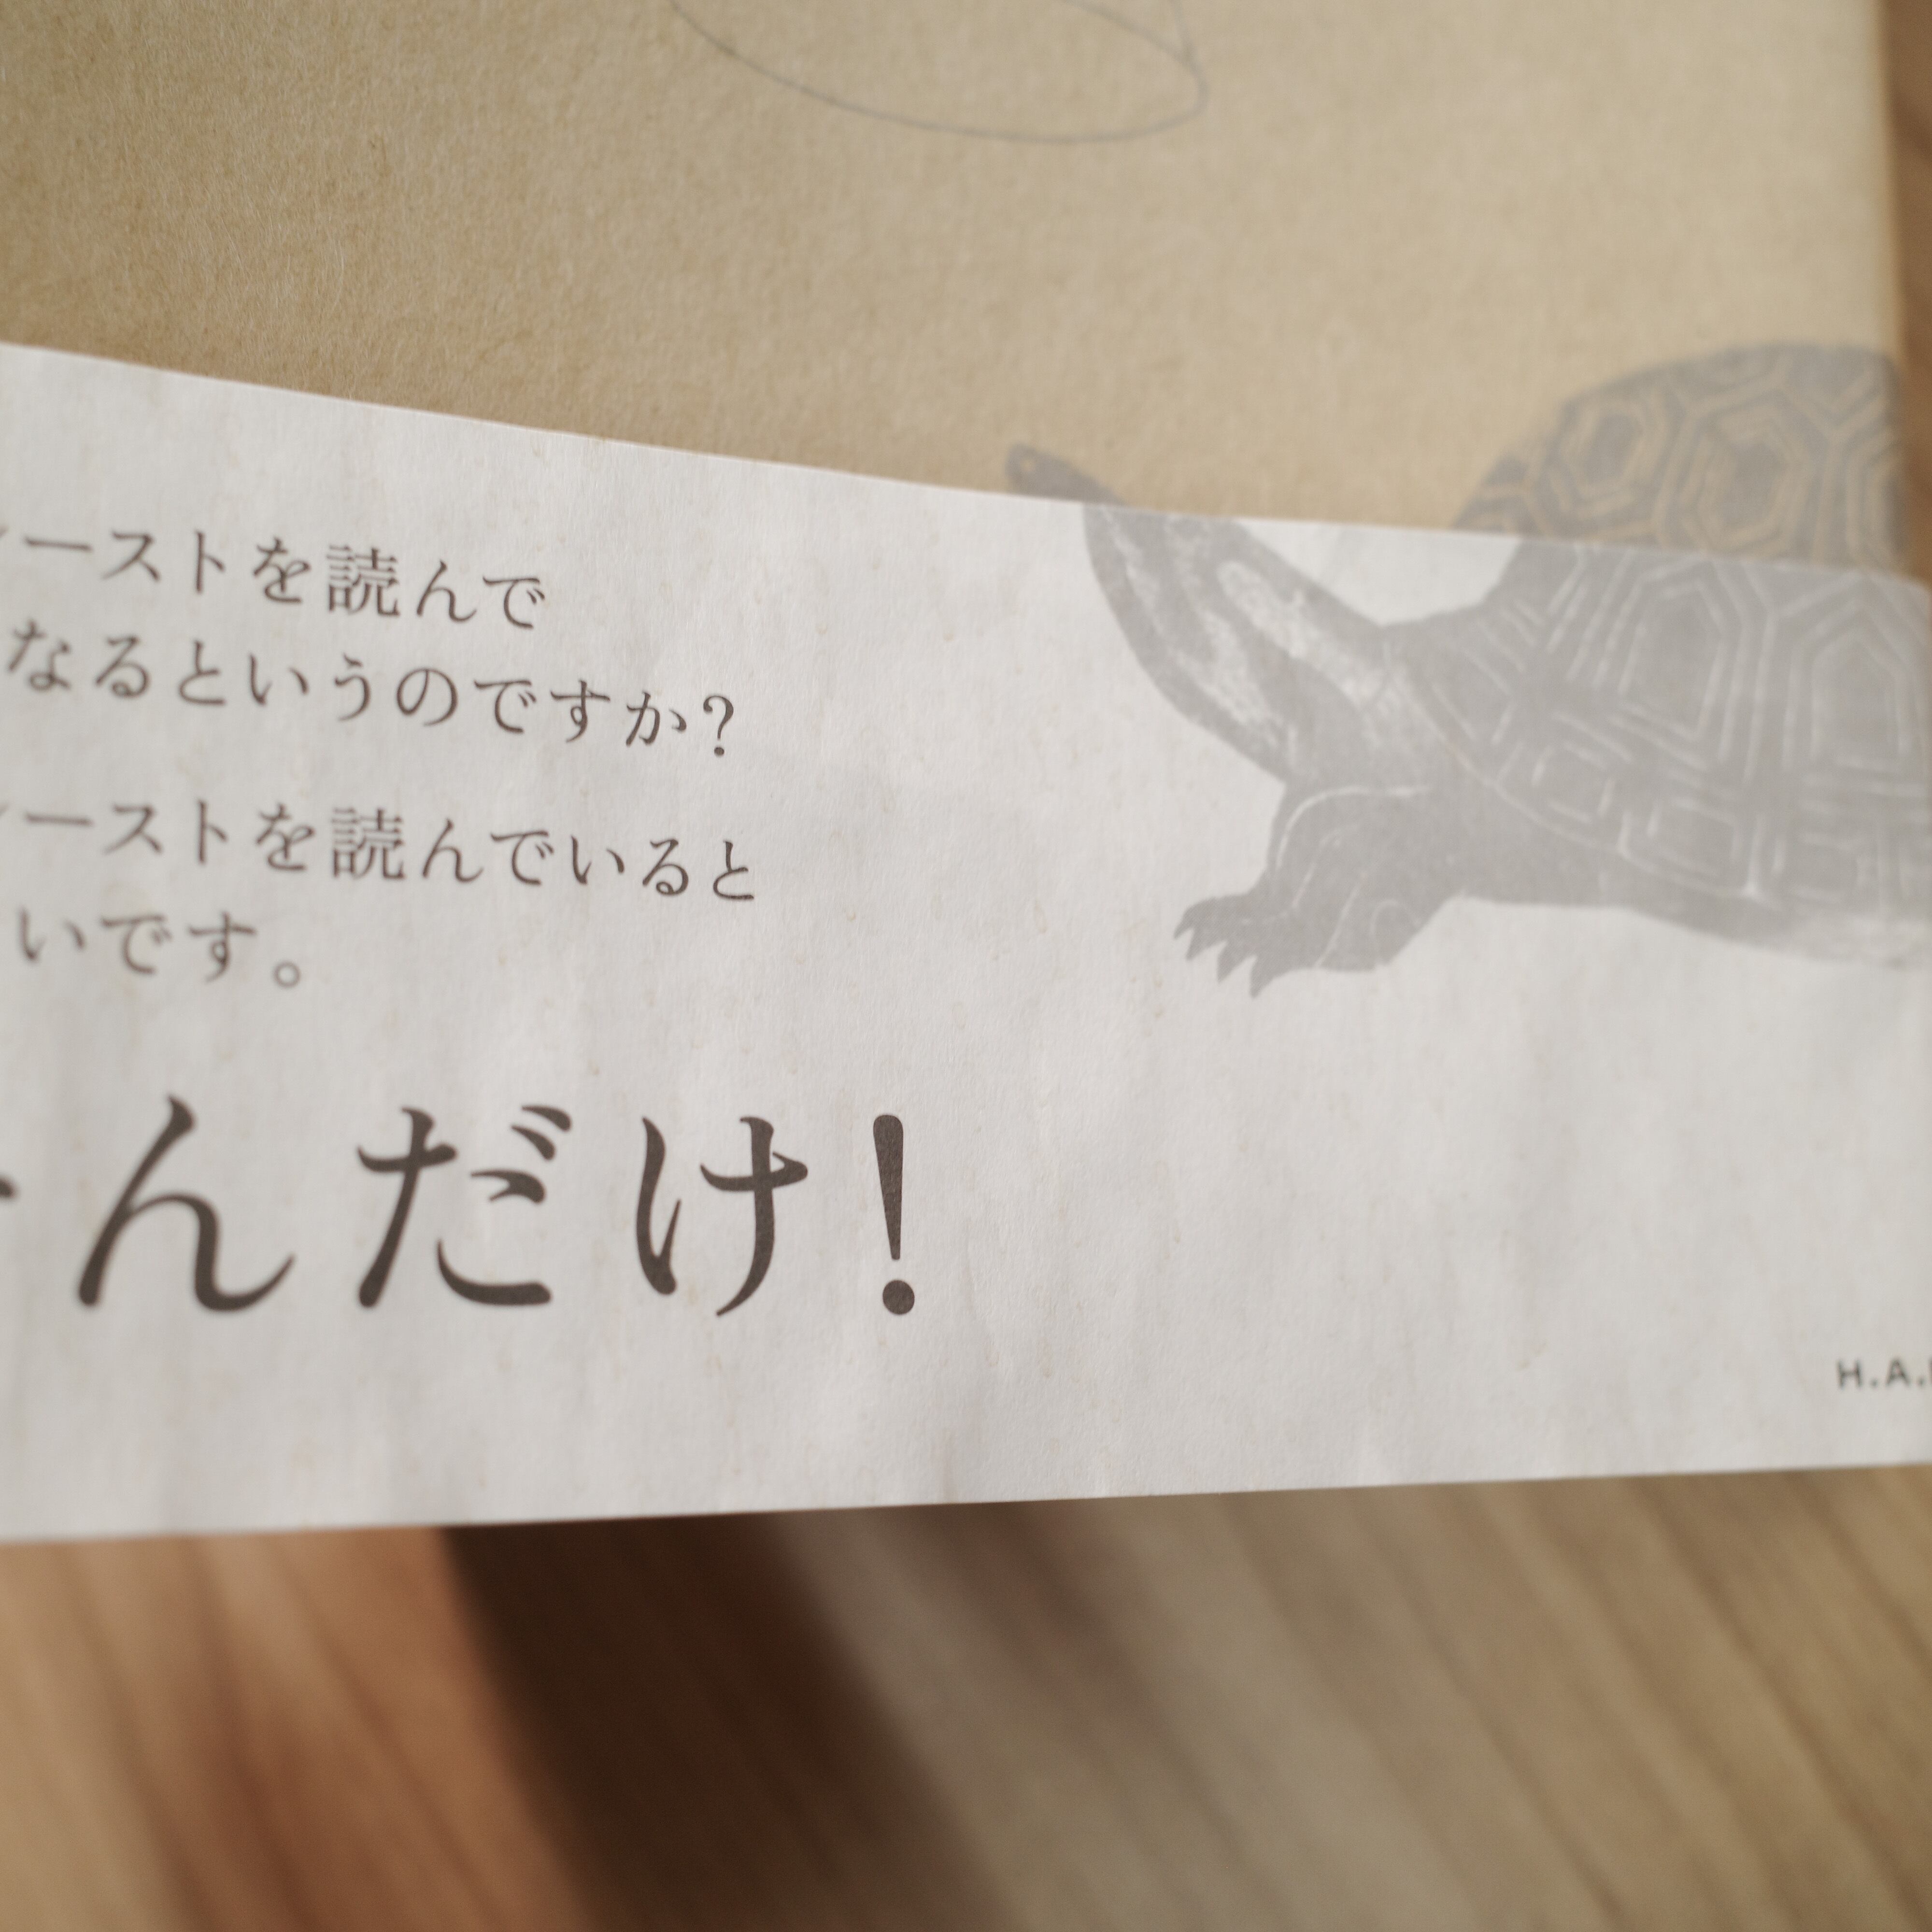 ーストを読んで
なるというのですか?
ーストを読んでいると
いです。
んだけ!
H.A.